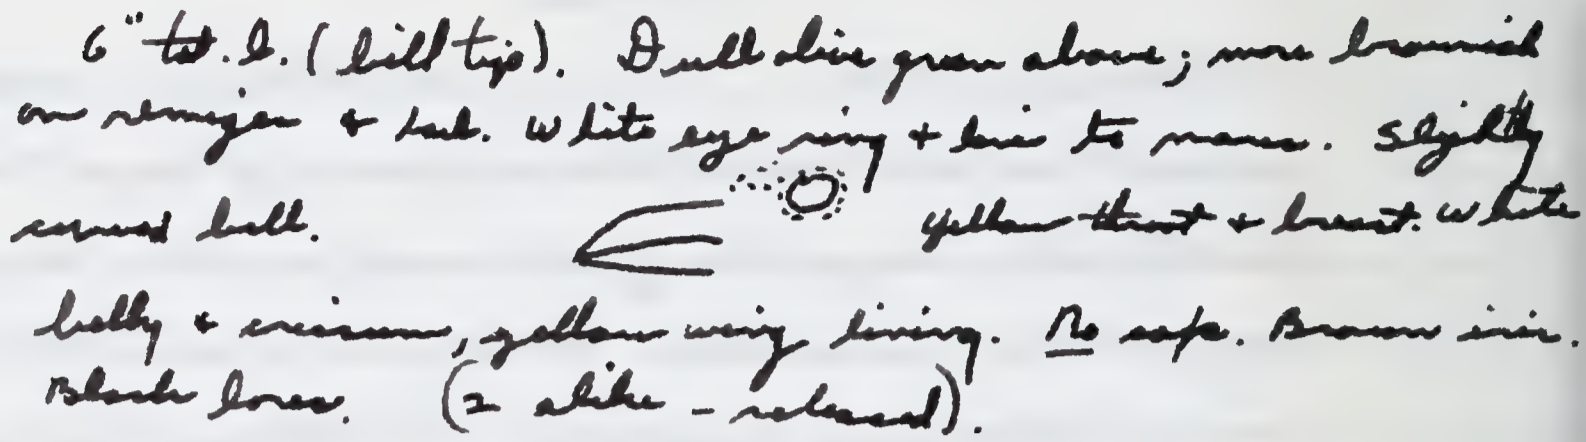 6" tot. l. (bill tip). Dull olive green above; more brownish
on remiges & tail. White eye ring & line to nares. Slightly
curved bill. yellow throat & breast. White
belly & crissum, yellow wing lining. No caps. Brown iris.
Black lores. (2 alike - released).